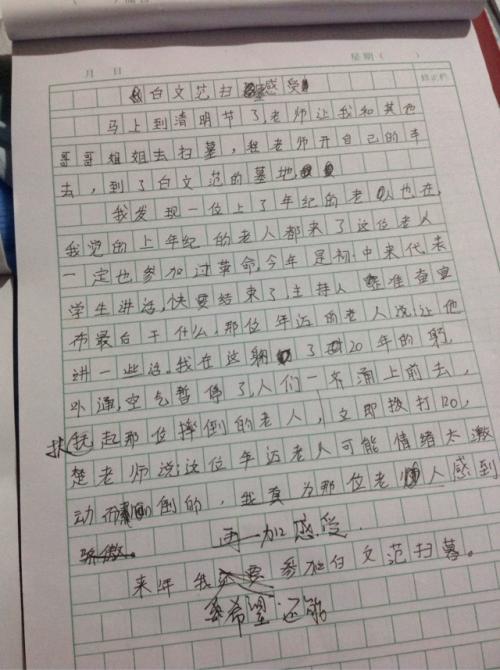 月 日 星期( )
白文范扫墓感受
马上到清明节了,老师让我和其他
哥哥姐姐去扫墓,楚老师开自己的车
去,到了白文范的墓地,
我发现一位上了年纪的老人也在,
我觉的上年纪的老人都来了这位老人
一定也参加过革命,今年是初中来代表
学生讲话,快要结束了,主持人准备宣
布最后干什么,那位年迈的老人说:让他
讲一些话。我在这躺了20年的
扑通,空气暂停了,人们一齐涌上前去,
扶起那位摔倒的老人,立即拨打120,
楚老师说:这位年迈老人可能情绪太激
动而倒的,我真为那位老人感到
骄傲。 再加感受
来年我还要参加白文范扫墓。
希望还能